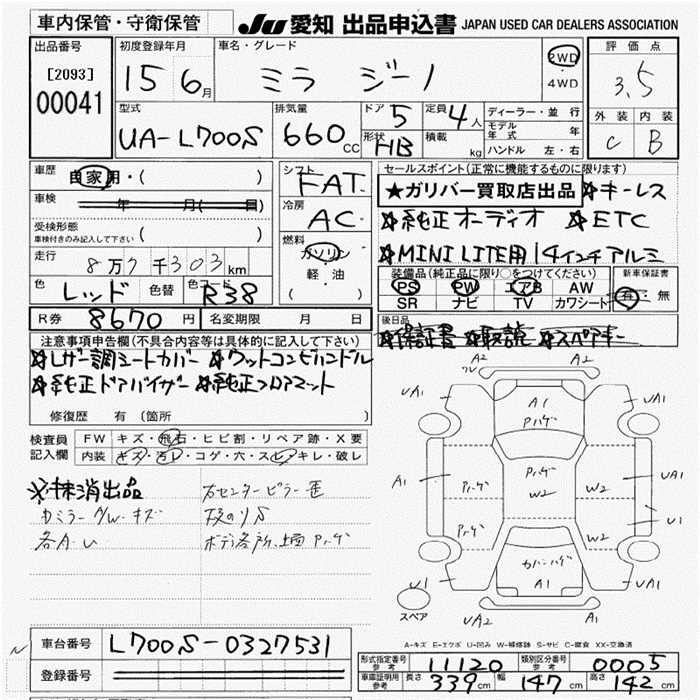 車内保管・守衛保管
JU 愛知 出品申込書 JAPAN USED CAR DEALERS ASSOCIATION
出品番号
[2093]
00041
初度登録年月
15 6月
車名・グレード
ミラ ジーノ
2WD
・4WD
評価点
3.5
外装 内装
C B
型式
UA-L700S
排気量
660cc
ドア 5
形状 HB
定員 4人
積載 kg
ディーラー・並行
モデル年式 年
ハンドル 左・右
車歴
自家用・( )
車検
年 月( 日)
受検形態
車検付きのみ記入して下さい ( )
走行
8万7千303km
色
レッド
色替
色コード
R38
シフト
FAT
冷房
AC
燃料
ガソリン
・軽・油
( )
セールスポイント(正常に機能するものに限ります)
★ガリバー買取店出品 ☆キーレス
☆純正オーディオ ☆ETC
☆MINI LITE用14インチアルミ
装備品(純正品に限り○をつけてください)
PS PW エアB AW
SR ナビ TV カワシート
新車保証書
有・無
R券
8670円
名変期限 月 日
後日品
☆保証書 ☆取説 ☆スペアキー
注意事項申告欄(不具合内容等は具体的に記入して下さい)
☆レザー調シートカバー ☆ウッドコンビハンドル
☆純正ドアバイザー ☆純正フロアマット
修復歴 有 (箇所 )
検査員
記入欄
FW キズ・飛石・ヒビ割・リペア跡・X要
内装 キズ・汚レ・コゲ・穴・スレ・キレ・破レ
☆抹消出品
右センターピラー歪
カミラー クW.キズ
各A.U
ボデー各所、上面 Pハゲ
A2
クレ
A2
UA1
UA1
A1
Pハゲ
A1
Pハゲ
W2
W2
UA1
U1
Pハゲ
Pハゲ
W2
カバーハゲ
A1
U1
UA1
UA2
A2
スペア
A-キズ E-エクボ U-凹み W-補修跡 S-サビ C-腐食 XX-交換済
車台番号
L700S-0327531
登録番号
形式指定番号
参考
11120
類別区分番号
参考
0005
車庫証明用
参考
長さ 339cm 幅 147cm 高さ 142cm